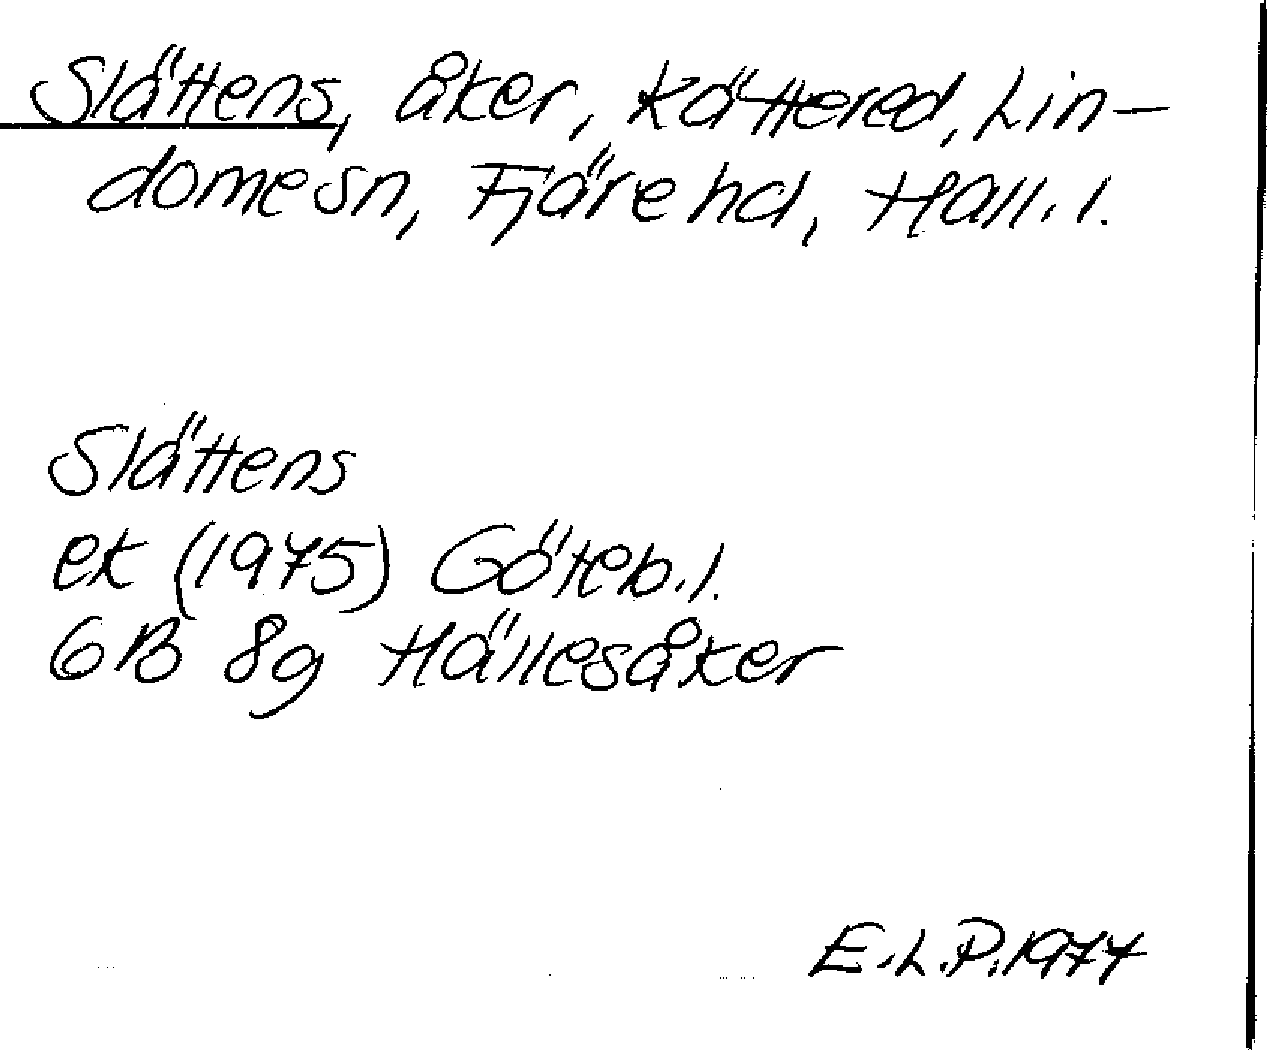 Slättens, åker, Kättered, Lin-
dome sn, Fjäre hd, Hall. l.
Slättens
ek (1975) Göteb. l.
6B 8g Hällesåker
E.L.P. 1977